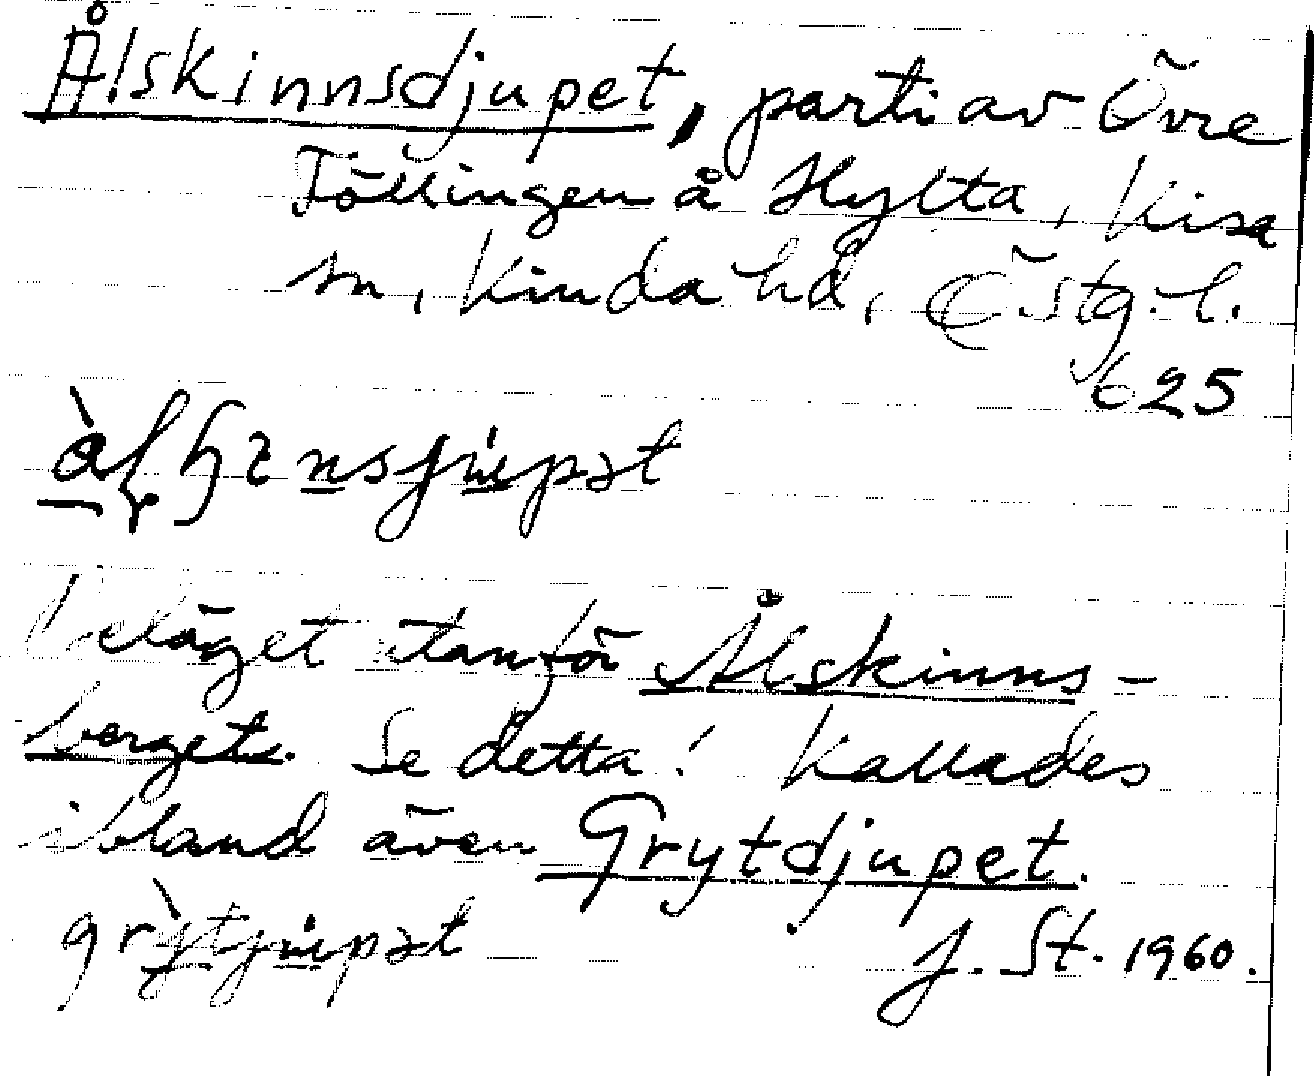 Ålskinnsdjupet, parti av Övre
Föllingen å Hylta, Kisa
sn, Kinda hd, Östg. l.
625
beläget utanför Ålskinns-
berget. Se detta! Kallades
ibland även Grytdjupet.
J. St. 1960.